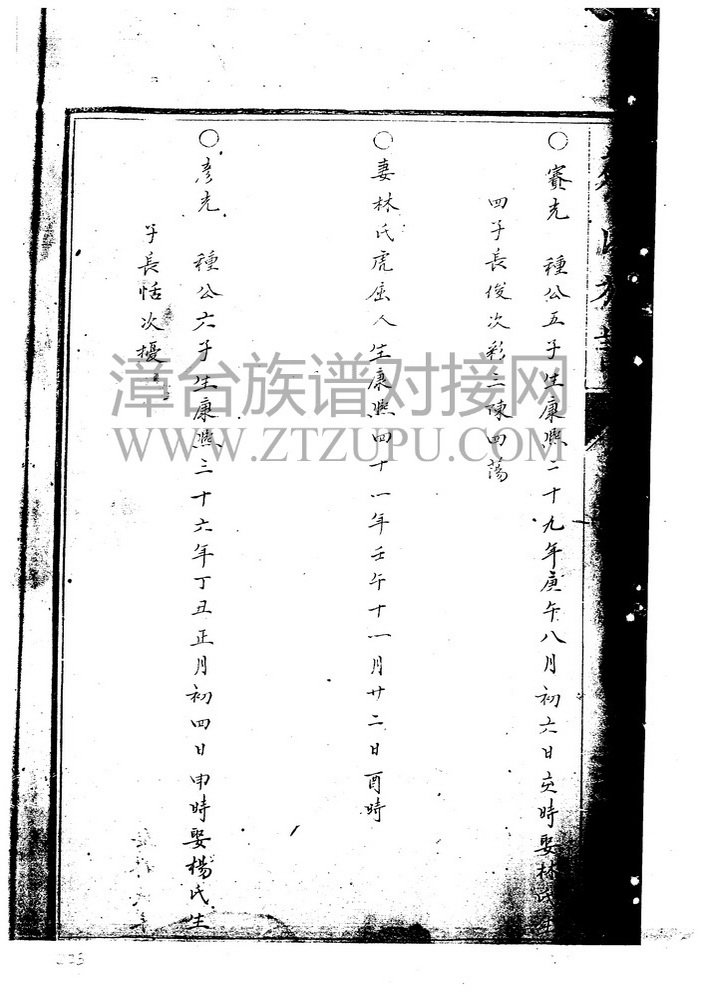 ○賽光　種公五子生康熙二十九年庚午八月初六日亥時娶林氏生
四子長俊次彩三陳四蕩
○妻林氏虎屈人生康熙四十一年壬午十一月廿二日酉時
○彥光　種公六子生康熙三十六年丁丑正月初四日申時娶楊氏生
子長恬次擾
漳台族谱对接网
WWW.ZTZUPU.COM